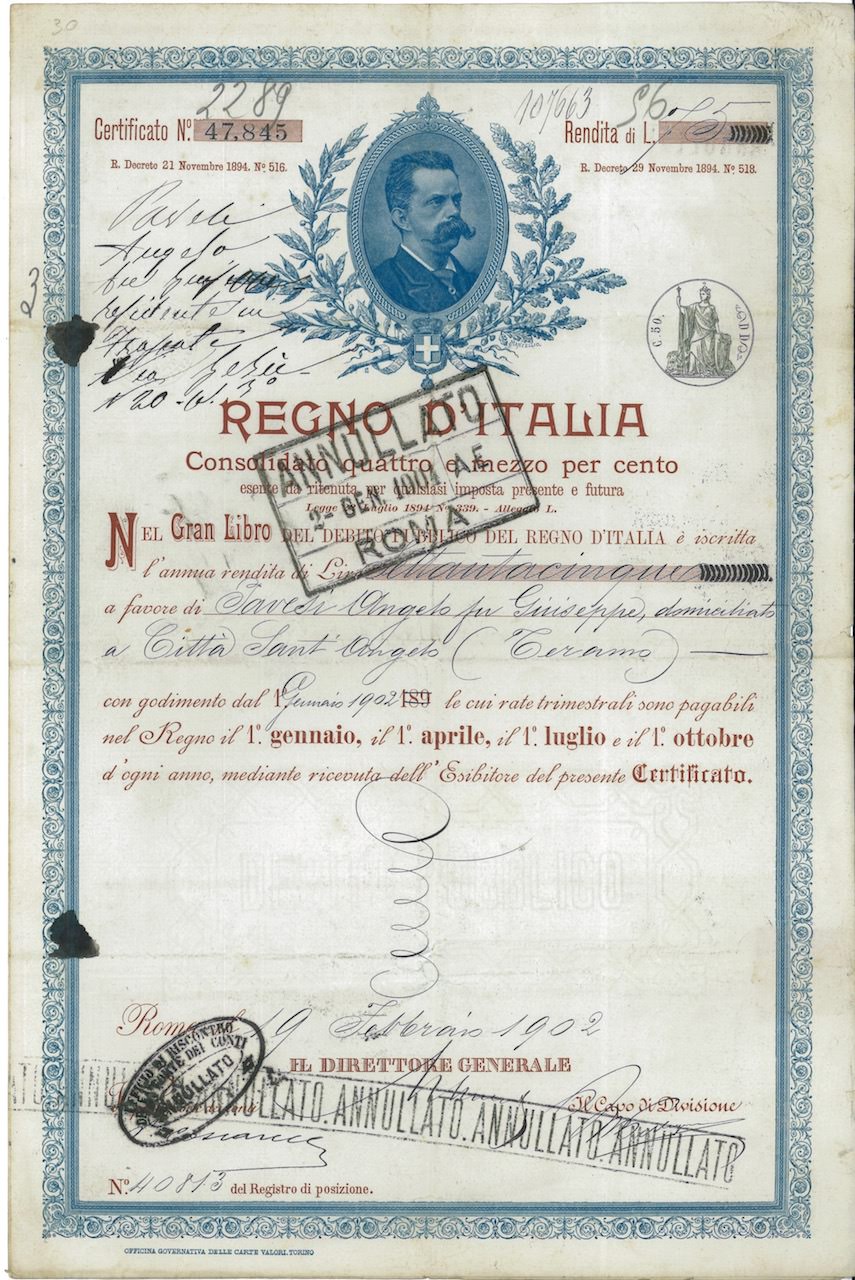 30
2289
107663 56
Certificato Nº 47,845
Rendita di L. 75
R. Decreto 21 Novembre 1894, Nº 516.
R. Decreto 29 Novembre 1894, Nº 518.
Angelo
Via Gesù
N 20
3
C. 50.
REGNO D'ITALIA
Consolidato quattro e mezzo per cento
esente da ritenuta per qualsiasi imposta presente e futura
Legge Luglio 1894 Nº 339. - Allegato L.
ANNULLATO
2 - GEN. 1904 A.F.
ROMA
NEL Gran Libro DEL DEBITO PUBBLICO DEL REGNO D'ITALIA è iscritta
l'annua rendita di Lire settantacinque
a favore di Pavesi Angelo fu Giuseppe, domiciliato
a Città Sant'Angelo (Teramo)
con godimento dal 1º Gennaio 1902 189 le cui rate trimestrali sono pagabili
nel Regno il 1º. gennaio, il 1º. aprile, il 1º. luglio e il 1º. ottobre
d'ogni anno, mediante ricevuta dell'Esibitore del presente Certificato.
DEBITO PUBBLICO
Roma, il 19 Febbraio 1902
IL DIRETTORE GENERALE
UFFICIO DI RISCONTRO
DELLA CORTE DEI CONTI
ANNULLATO
Il Capo di Divisione
ANNULLATO. ANNULLATO. ANNULLATO. ANNULLATO
Nº 40813 del Registro di posizione.
OFFICINA GOVERNATIVA DELLE CARTE VALORI. TORINO